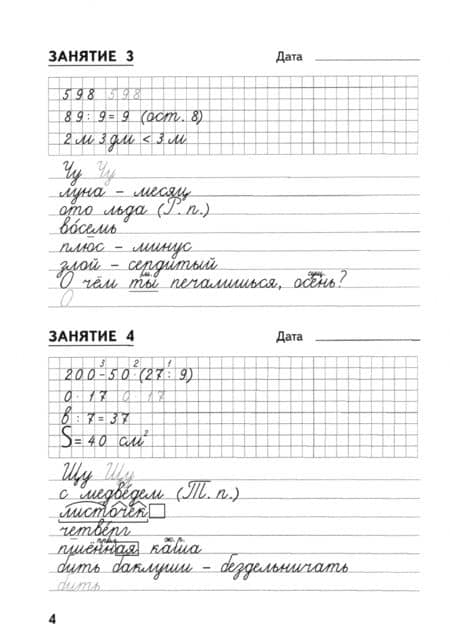 ЗАНЯТИЕ 3 Дата
598 598
89 : 9 = 9 (ост. 8)
2 м 3 дм < 3 м
Чу Чу
луна – месяц
ото льда (Р. п.)
восемь
плюс – минус
злой – сердитый
О чём ты печалишься, осень?
О
ЗАНЯТИЕ 4 Дата
3 2 1
200-50·(27 : 9)
0 · 17 0 · 17
в : 7 = 37
S = 40 см²
Щу Щу
с медведем (Т. п.)
листочек
четверг
пшённая каша
бить баклуши – бездельничать
бить
4